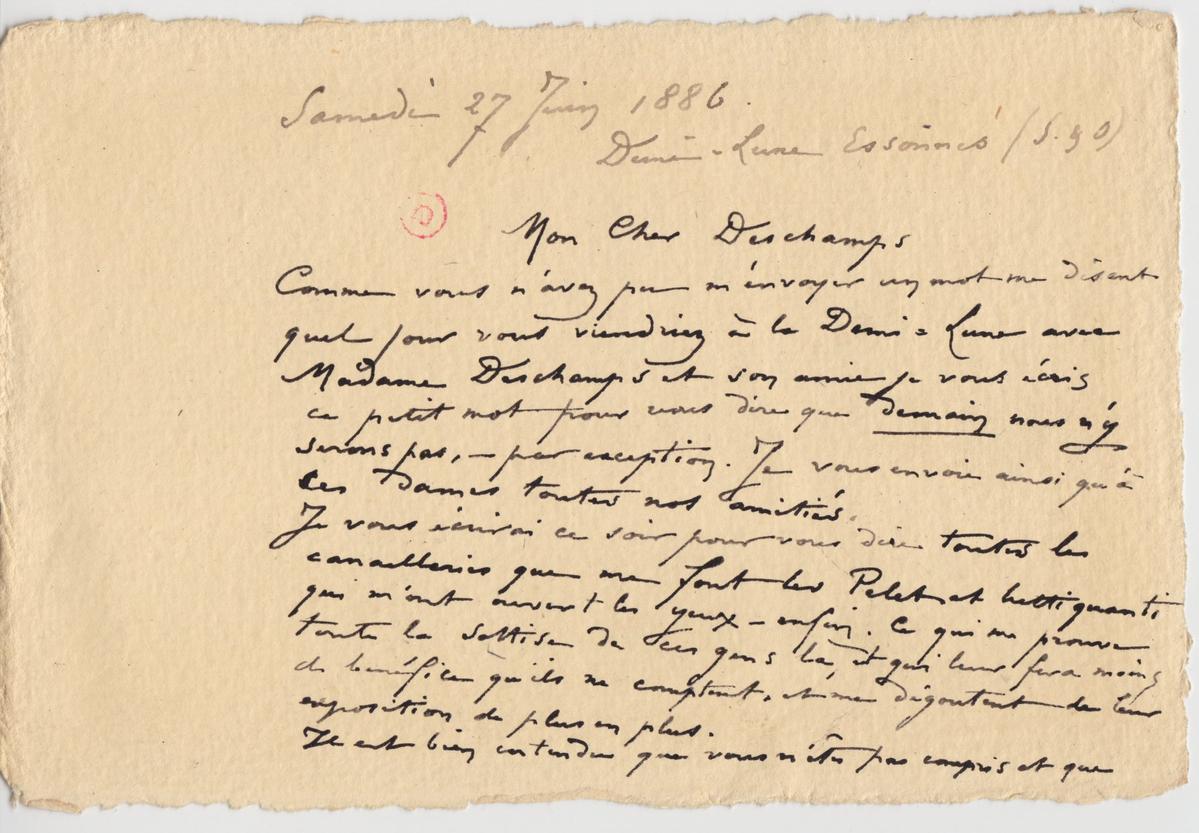 Samedi 27 Juin 1886.
Demi-Lune Essonnes (S. & O)
Mon Cher Deschamps
Comme vous n'avez pu m'envoyer un mot me disant
quel jour vous viendriez à la Demi=Lune avec
Madame Deschamps et son amie je vous écris
ce petit mot pour vous dire que demain nous n'y
serons pas, — par exception. Je vous envoie ainsi qu'à
ces dames toutes nos amitiés.
Je vous écrirai ce soir pour vous dire toutes les
canailleries que me font les Pelet et tutti quanti
qui m'ont ouvert les yeux — enfin. Ce qui me prouve
toute la sottise de ces gens là, et qui leur fera moins
de bénéfice qu'ils ne comptent, et me dégoutent de leur
exposition de plus en plus.
Il est bien entendu que vous n'êtes pas compris et que